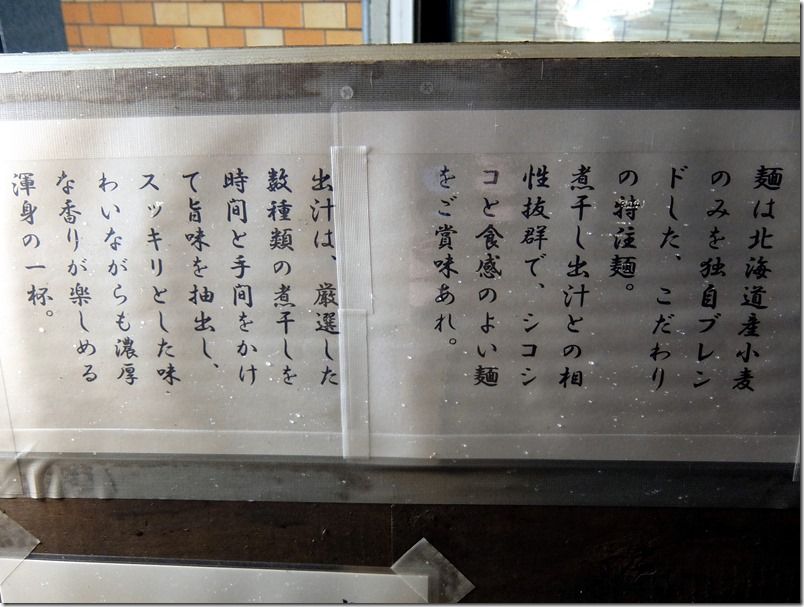 麺は北海道産小麦
のみを独自ブレン
ドした、こだわり
の特注麺。
煮干し出汁との相
性抜群で、シコシ
コと食感のよい麺
をご賞味あれ。
出汁は、厳選した
数種類の煮干しを
時間と手間をかけ
て旨味を抽出し、
スッキリとした味
わいながらも濃厚
な香りが楽しめる
渾身の一杯。